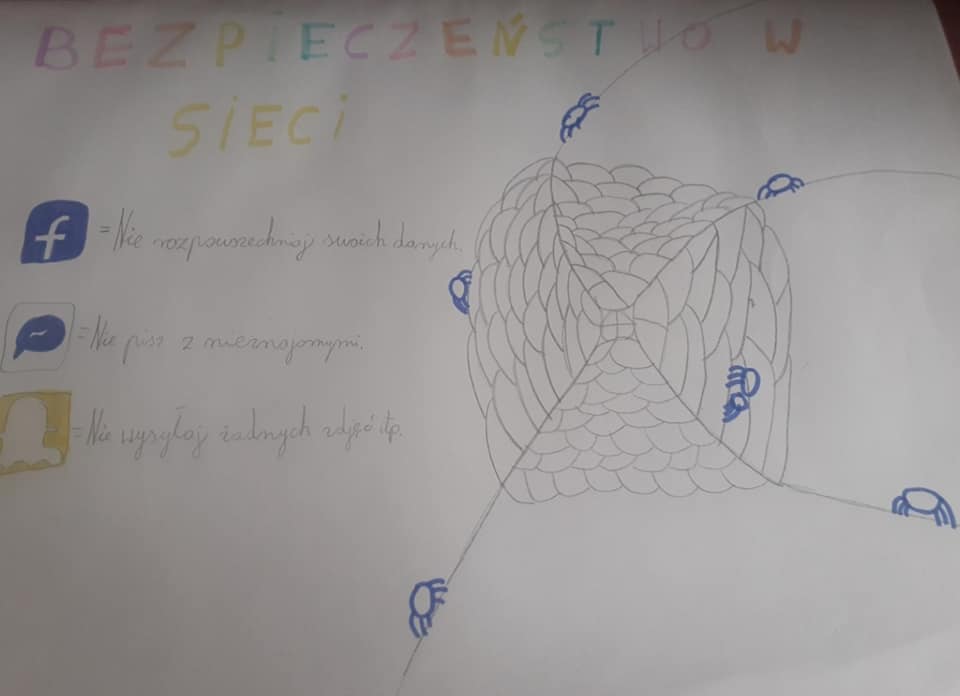 BEZPIECZEŃSTWO W
SIECI
f = Nie rozpowszechniaj swoich danych.
= Nie pisz z nieznajomymi.
= Nie wysyłaj żadnych zdjęć itp.